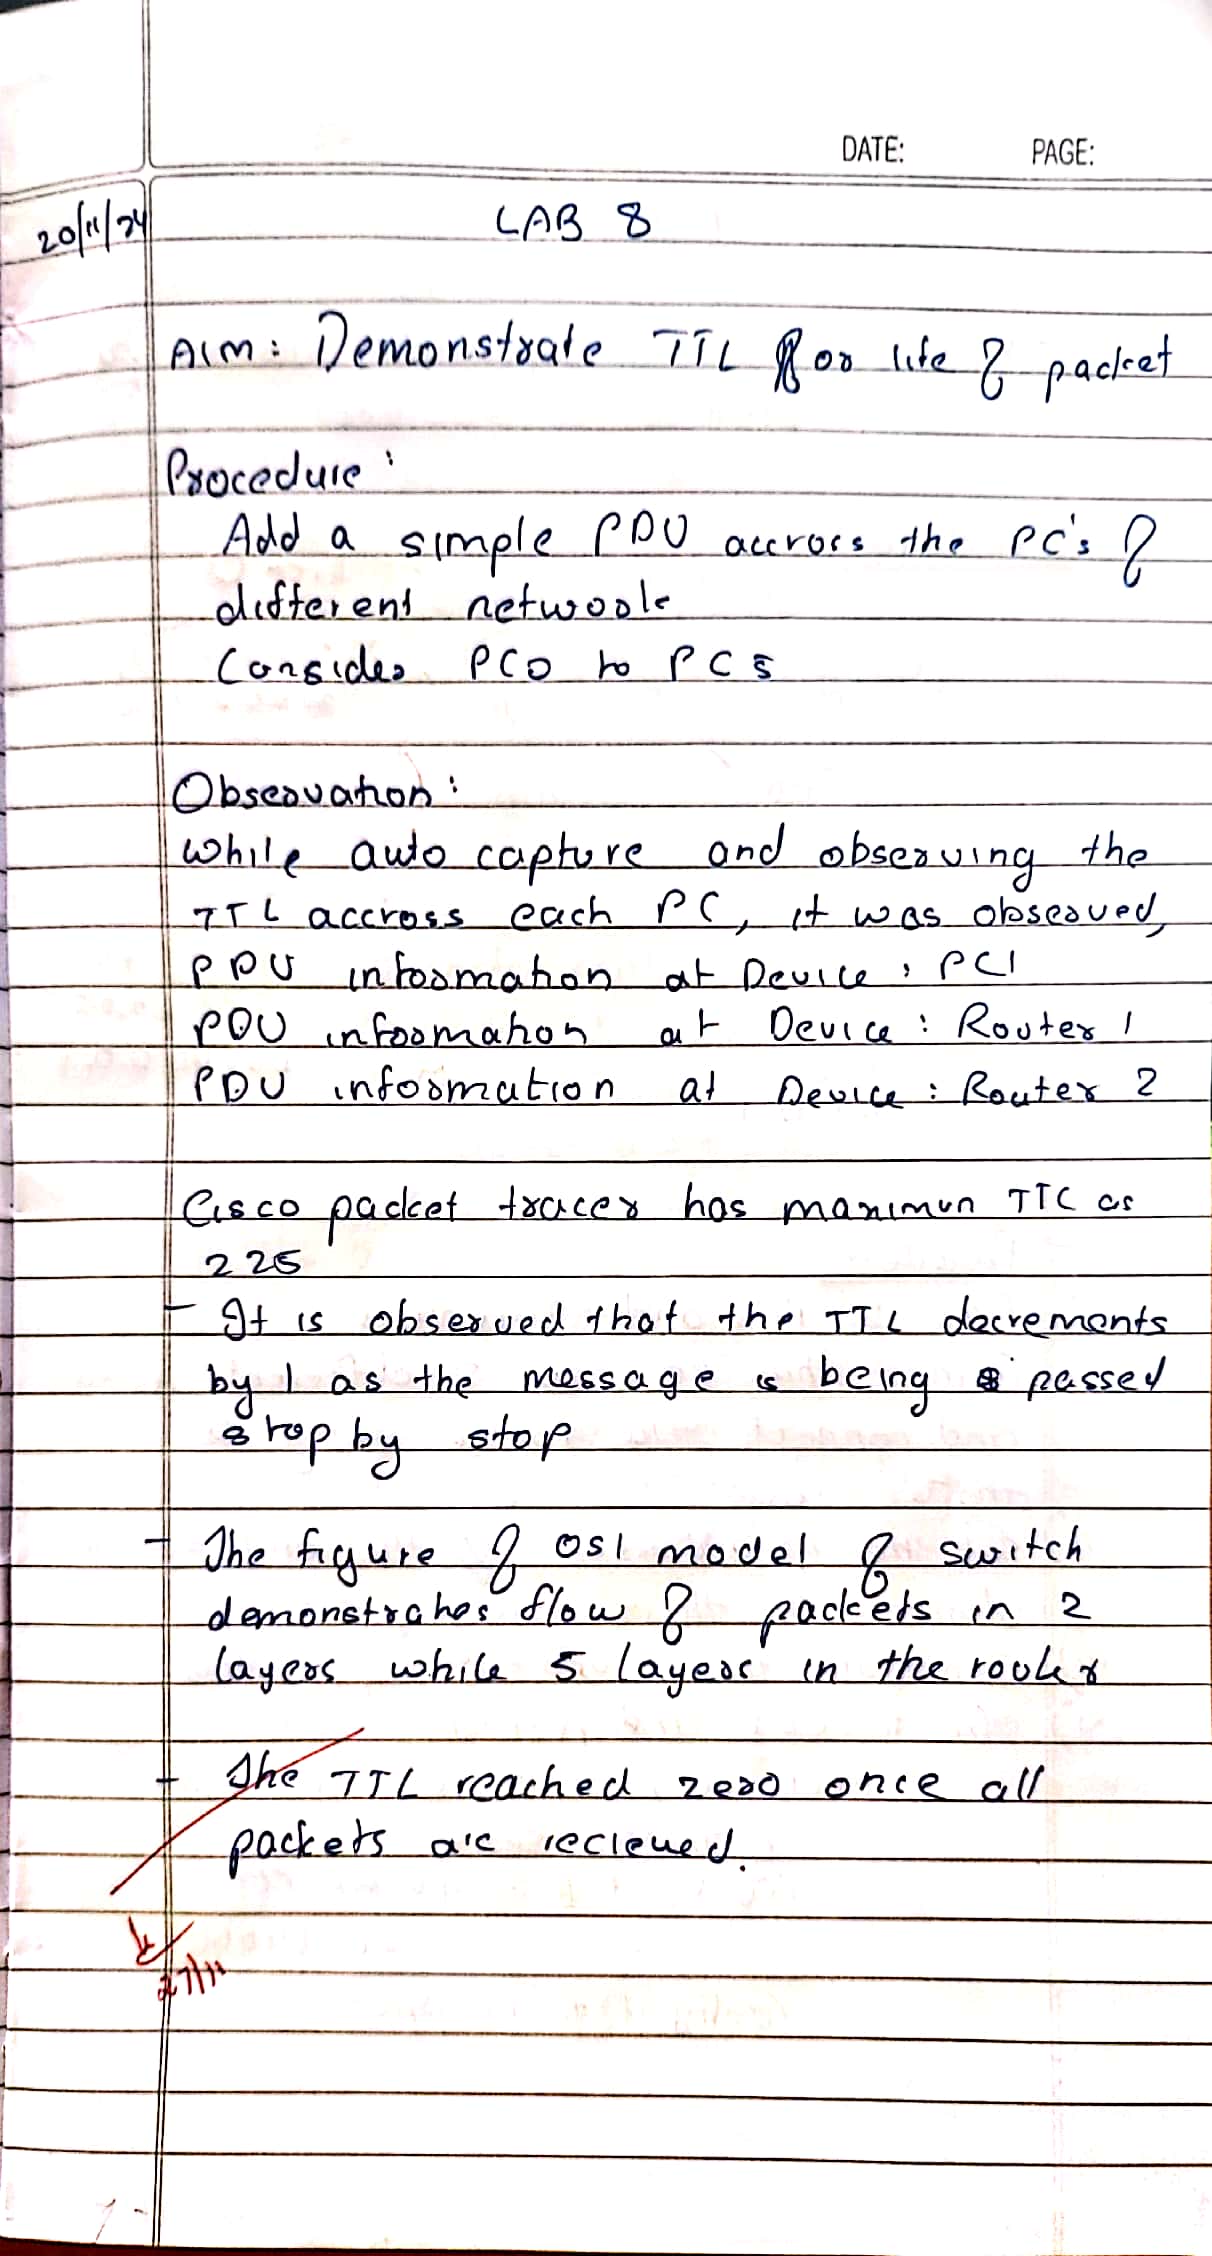 DATE: PAGE:
20/11/24 LAB 8
AIM: Demonstrate TTL for life of packet
Procedure:
Add a simple PDU accross the PC's of
different network
Consider PC0 to PC5
Observation:
While auto capture and observing the
TTL accross each PC, it was observed,
PDU information at Device: PC1
PDU information at Device: Router 1
PDU information at Device: Router 2
Cisco packet tracer has maximun TTL as
225
- It is observed that the TTL decrements
by 1 as the message is being passed
stop by stop
- The figure of OSI model of switch
demonstrates flow of packets in 2
layers while 5 layers in the router
- The TTL reached zero once all
packets are recieved.
27/11